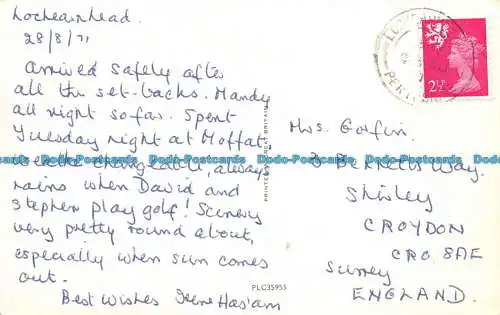 Lochearnhead.
28/8/71
Arrived safely after
all the set-backs. Mandy
all right so far. Spent
Tuesday night at Moffat.
Weather changeable, always
rains when David and
Stephen play golf! Scenery
very pretty round about,
especially when sun comes
out.
Best wishes Irene
PRINTED BRITAIN
PLC35955
2½P
PERTHSHIRE
Mrs. Goffin.
3 Bennetts Way.
Shirley
CROYDON
CRO 8AE
Surrey
ENGLAND.
Dodo-Postcards Dodo-Postcards Dodo-Postcards Dodo-Postcards